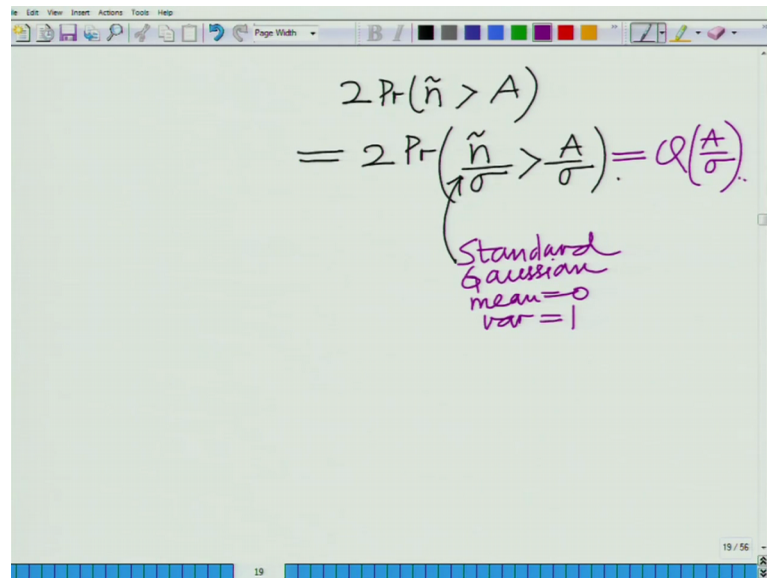 le Edit View Insert Actions Tools Help
Page Width B I
2 Pr(ñ > A)
= 2 Pr(ñ/σ > A/σ). = Q(A/σ)..
Standard
Gaussian
mean=0
var=1
19 / 56
19